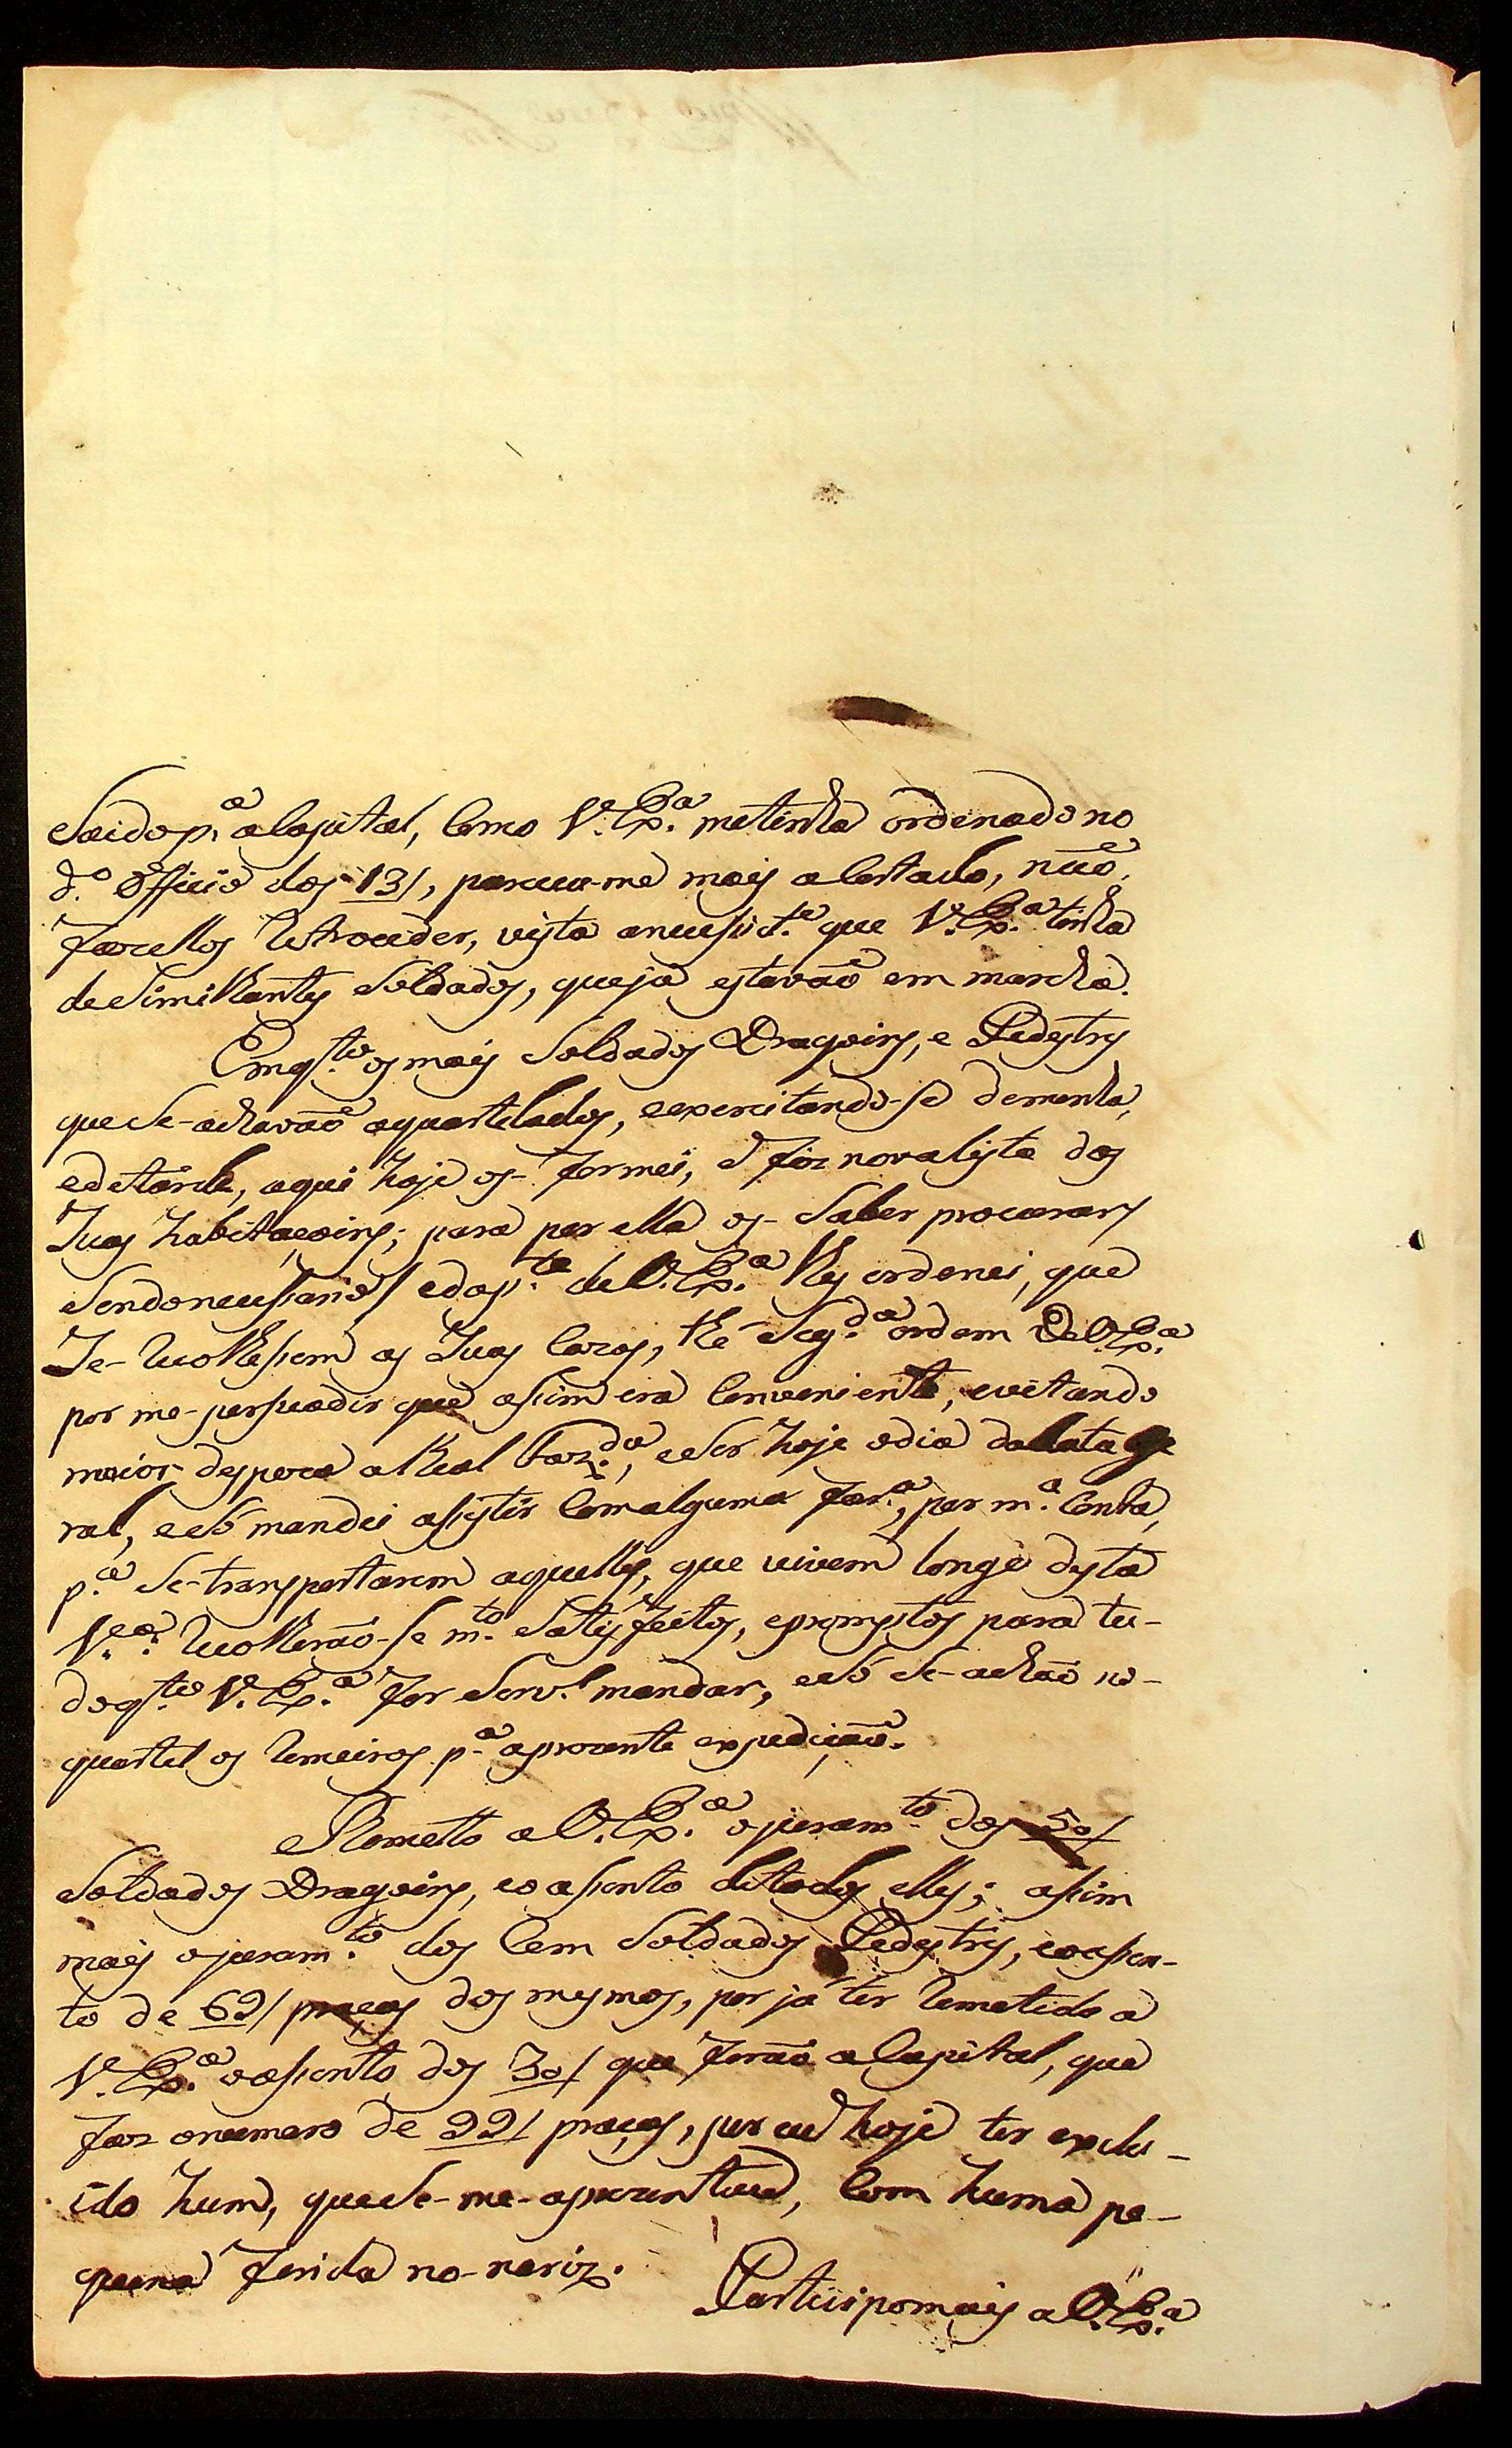 Saido p.ª a Capital, como V. Ex.ª metinha ordenado no
d.º Officio dos 13/, pareceu-me mais acertado, não
fazellos retroceder, vista anecessid.e que V. Ex.ª tinha
de Similhantes Soldados, que já estavão em marcha.
Emq.to os mais Soldados Dragoins, e Pedestres
que Se-achavão aquartelados, eexercitando-se demenhã,
edetarde, aqui hoje os-formei, e fiz nova lista das
Suas habitaçoins; para por ella os-Saber procurar/
Sendo necessario/ eda p.te de V. Ex.ª lhes ordenei, que
Se-recolhessem as Suas Cazas, thé Seg.da ordem De V. Ex.ª
por me-persuadir que assim era Conveniente, evitando
maior despeza a Real Faz.da, eSer hoje odia da
ral, eeSó mandei assistir Com alguma far.ª, por m.ª Conta,
p.ª Se-transportarem aquelles, que vivem longe desta
V.ª: recolherão-se m.to Satisfeitos, epromptos para tu-
doq.to V. Ex.ª for Serv.º mandar, eeSó Se-achão no-
quartel os remeiros p.ª aprezente expedição.
Remetto a V. Ex.ª ojuram.to dos 50/
Soldados Dragoins, eo assento detodos elles; assim
mais ojuram.to dos Cem Soldados Pedestres, eoassen-
to de 69/ praças dos mesmos, por já ter remetido a
V. Ex.ª oassento dos 30/ que forão a Capital, que
faz onumero de 99/ praças, por eu hoje ter exclu-
ido hum, que Se-me-aprezentou, Com huma pe-
quena ferida no-nariz.
Participo mais a V. Ex.ª